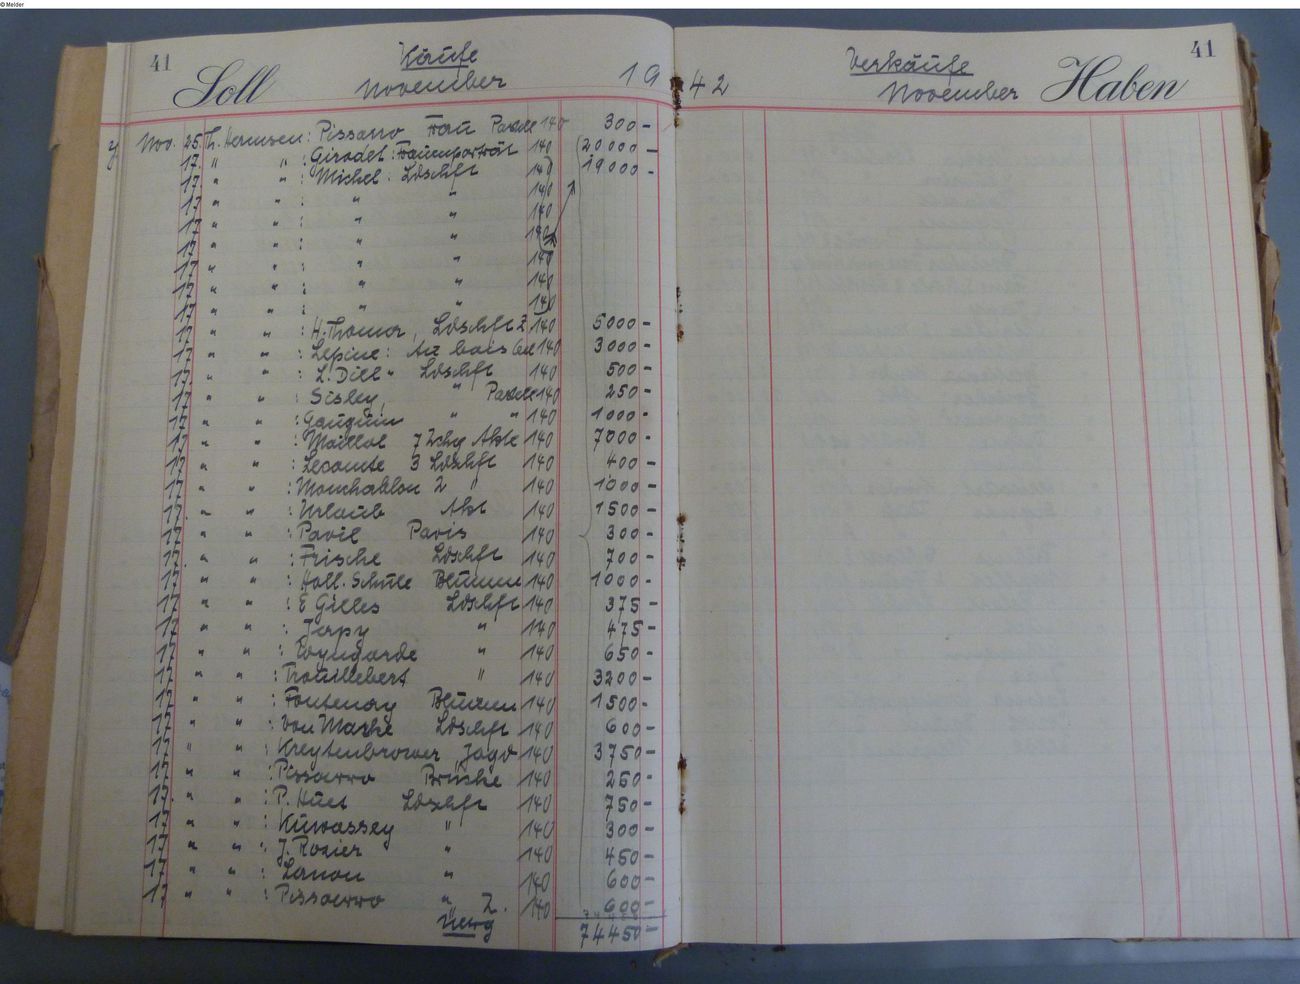 © Melder
41
Käufe
Soll November 19
Nov. 25. Th. Hermsen: Pissarro Frau Pastell 140 300 -
17. " " : Girodet: Frauenporträt 140 20000 -
17. " " : Michel: Ldschft 140 19000 -
17. " " : " " 140
17. " " : " " 140
17. " " : " " 140
17. " " : " " 140
17. " " : " " 140
17. " " : " " 140
17. " " : H. Thoma, Ldschft Z 140 5000 -
17. " " : Lepine: Au bois 140 3000 -
17. " " : L. Dill " Ldschft 140 500 -
17. " " : Sisley, " Pastell 140 250 -
17. " " : Gauguin " " 140 1000 -
17. " " : Maillol 7 Zchg Akte 140 7000 -
17. " " : Lecomte 3 Ldschft 140 400 -
17. " " : Monchablon 2 " 140 1000 -
17. " " : Urlaub Akt 140 1500 -
17. " " : Pavil Paris 140 300 -
17. " " : Frische Ldschft 140 700 -
17. " " : Holl. Schule Blumen 140 1000 -
17. " " : E Gilles Ldschft 140 375 -
17. " " : Jerpy " 140 475 -
17. " " : Wyngarde " 140 650 -
17. " " : Trouillebert " 140 3200 -
17. " " : Fontenay Blumen 140 1500 -
17. " " : von Marke Ldschft 140 600 -
17. " " : Kreytenbrower Jagd 140 3750 -
17. " " : Pissarro Brücke 140 250 -
17. " " : P. Huet Ldschft 140 750 -
17. " " : Kuwassey " 140 300 -
17. " " : J. Rozier " 140 450 -
17. " " : Lanon " 140 600 -
17. " " : Pissarro " 2. 140 600 -
74450 -
41
Verkäufe
42 November Haben